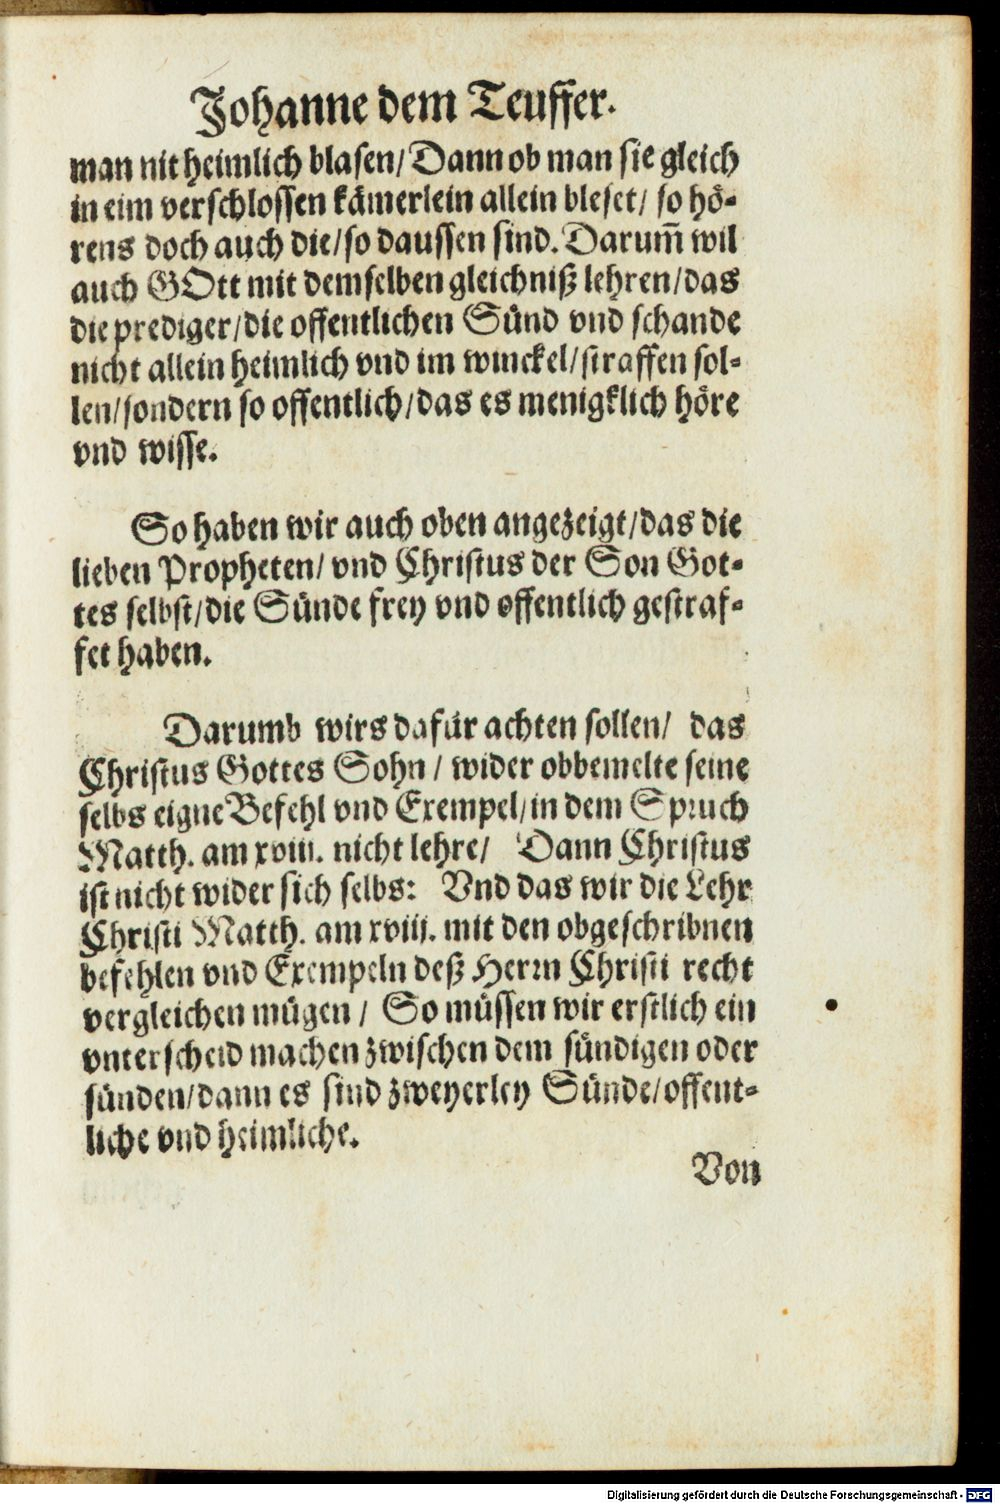 Johanne dem Teuffer.
man nit heimlich blasen/Dann ob man sie gleich
in eim verschlossen kämerlein allein bleset/ so hö-
rens doch auch die/so daussen sind. Darum̃ wil
auch GOtt mit demselben gleichniß lehren/das
die prediger/die offentlichen Sünd vnd schande
nicht allein heimlich vnd im winckel/straffen sol-
len/sondern so offentlich/das es menigklich höre
vnd wisse.
So haben wir auch oben angezeigt/das die
lieben Propheten/ vnd Christus der Son Got-
tes selbst/die Sünde frey vnd offentlich gestraf-
fet haben.
Darumb wirs dafür achten sollen/ das
Christus Gottes Sohn / wider obbemelte seine
selbs eigne Befehl vnd Exempel/in dem Spruch
Matth. am xviii. nicht lehre/ Dann Christus
ist nicht wider sich selbs: Vnd das wir die Lehr
Christi Matth. am xviij. mit den obgeschribnen
befehlen vnd Exempeln deß Herrn Christi recht
vergleichen mügen / So müssen wir erstlich ein
vnterscheid machen zwischen dem sündigen oder
sünden/dann es sind zweyerley Sünde/offent-
liche vnd heimliche.
Von
Digitalisierung gefördert durch die Deutsche Forschungsgemeinschaft - DFG